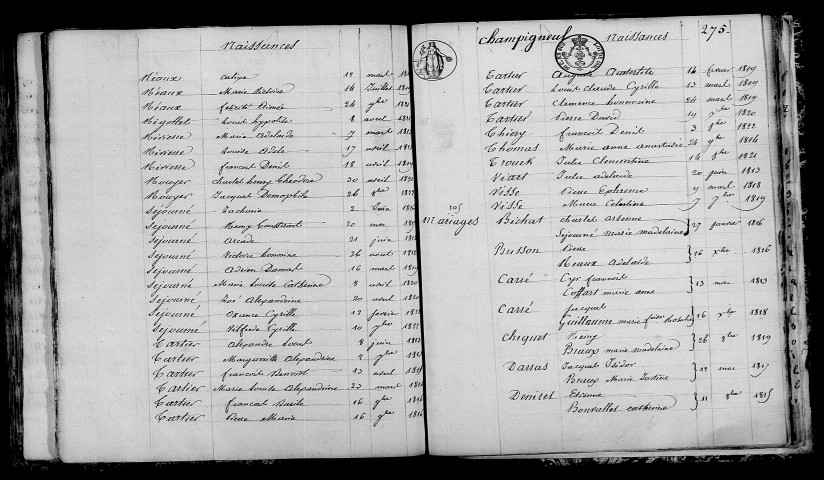 Naissances
Réaux calixe 12 mars
Réaux Marie Victoire 14 Juillet
Réaux félicité Aimée 24 9bre
Rigollet Louis hypolite 8 avril
Riviere Marie Adelaide 7 mars
Riviere Louise Adele 17 avril
Riviere francois Denis 18 avril
Royer charles henry Theodore 30 avril
Royer Jacques Demophile 26 8bre
Séjourné Zacharie 2 Juin
Séjourné Remy Constant 20 mai
Séjourné Arcade 21 juin
Séjourné Victoire honorine 26 aout
Séjourné Adrien 16 mars
Séjourné Marie Louise Catherine 8 avril 1820
Séjourné Zoé Alexandrine 20 avril 1820
Séjourné Cyrille 12 fevrier
Séjourné Cyrille 10 7bre 1822
Tartier Alexandre Louis 8 juin
Tartier Marguerite Alexandrine 2 7bre
Tartier francois Benoist 13 avril
Tartier Marie Louise Alexandrine 23 mars
Tartier francois Basile 16 9bre
Tartier Pierre Marie 16 9bre
Champigneul Naissances 275.
Tartier Auguste 14 fevrier 1819
Tartier Louis claude Cyrille 13 mars 1819
Tartier Clemence honnorine 24 mars 1819
Tartier Pierre David 19 Xbre 1820
Thiery francois Denis 3 8bre 1822
Thomas Marie anne anastasie 24 9bre 1814
Trouck Julie Clementine 14 8bre 1821
Véart Julie adelaide 20 juin 1813
Vésse Pierre Ephreme 9 mars 1818
Vésse Marie Celestine 7 7bre 1819
Mariages Béchat charles arsenne
Séjourné marie madelaine 27 janvier 1816
Busson Pierre
Reaux Adelaide 16 Xbre 1816
Carré Cyr francois
Coffart marie anne 13 mai 1813
Carré Jacques
Guillaume marie 16 Xbre 1818
Chiquet Remy
Braux marie madelaine 26 8bre 1819
Darras Jacques Isidor
Braux Marie Justine 12 mai 1817
Deniset Etienne
Bonvallet catherine 11 8bre 1815